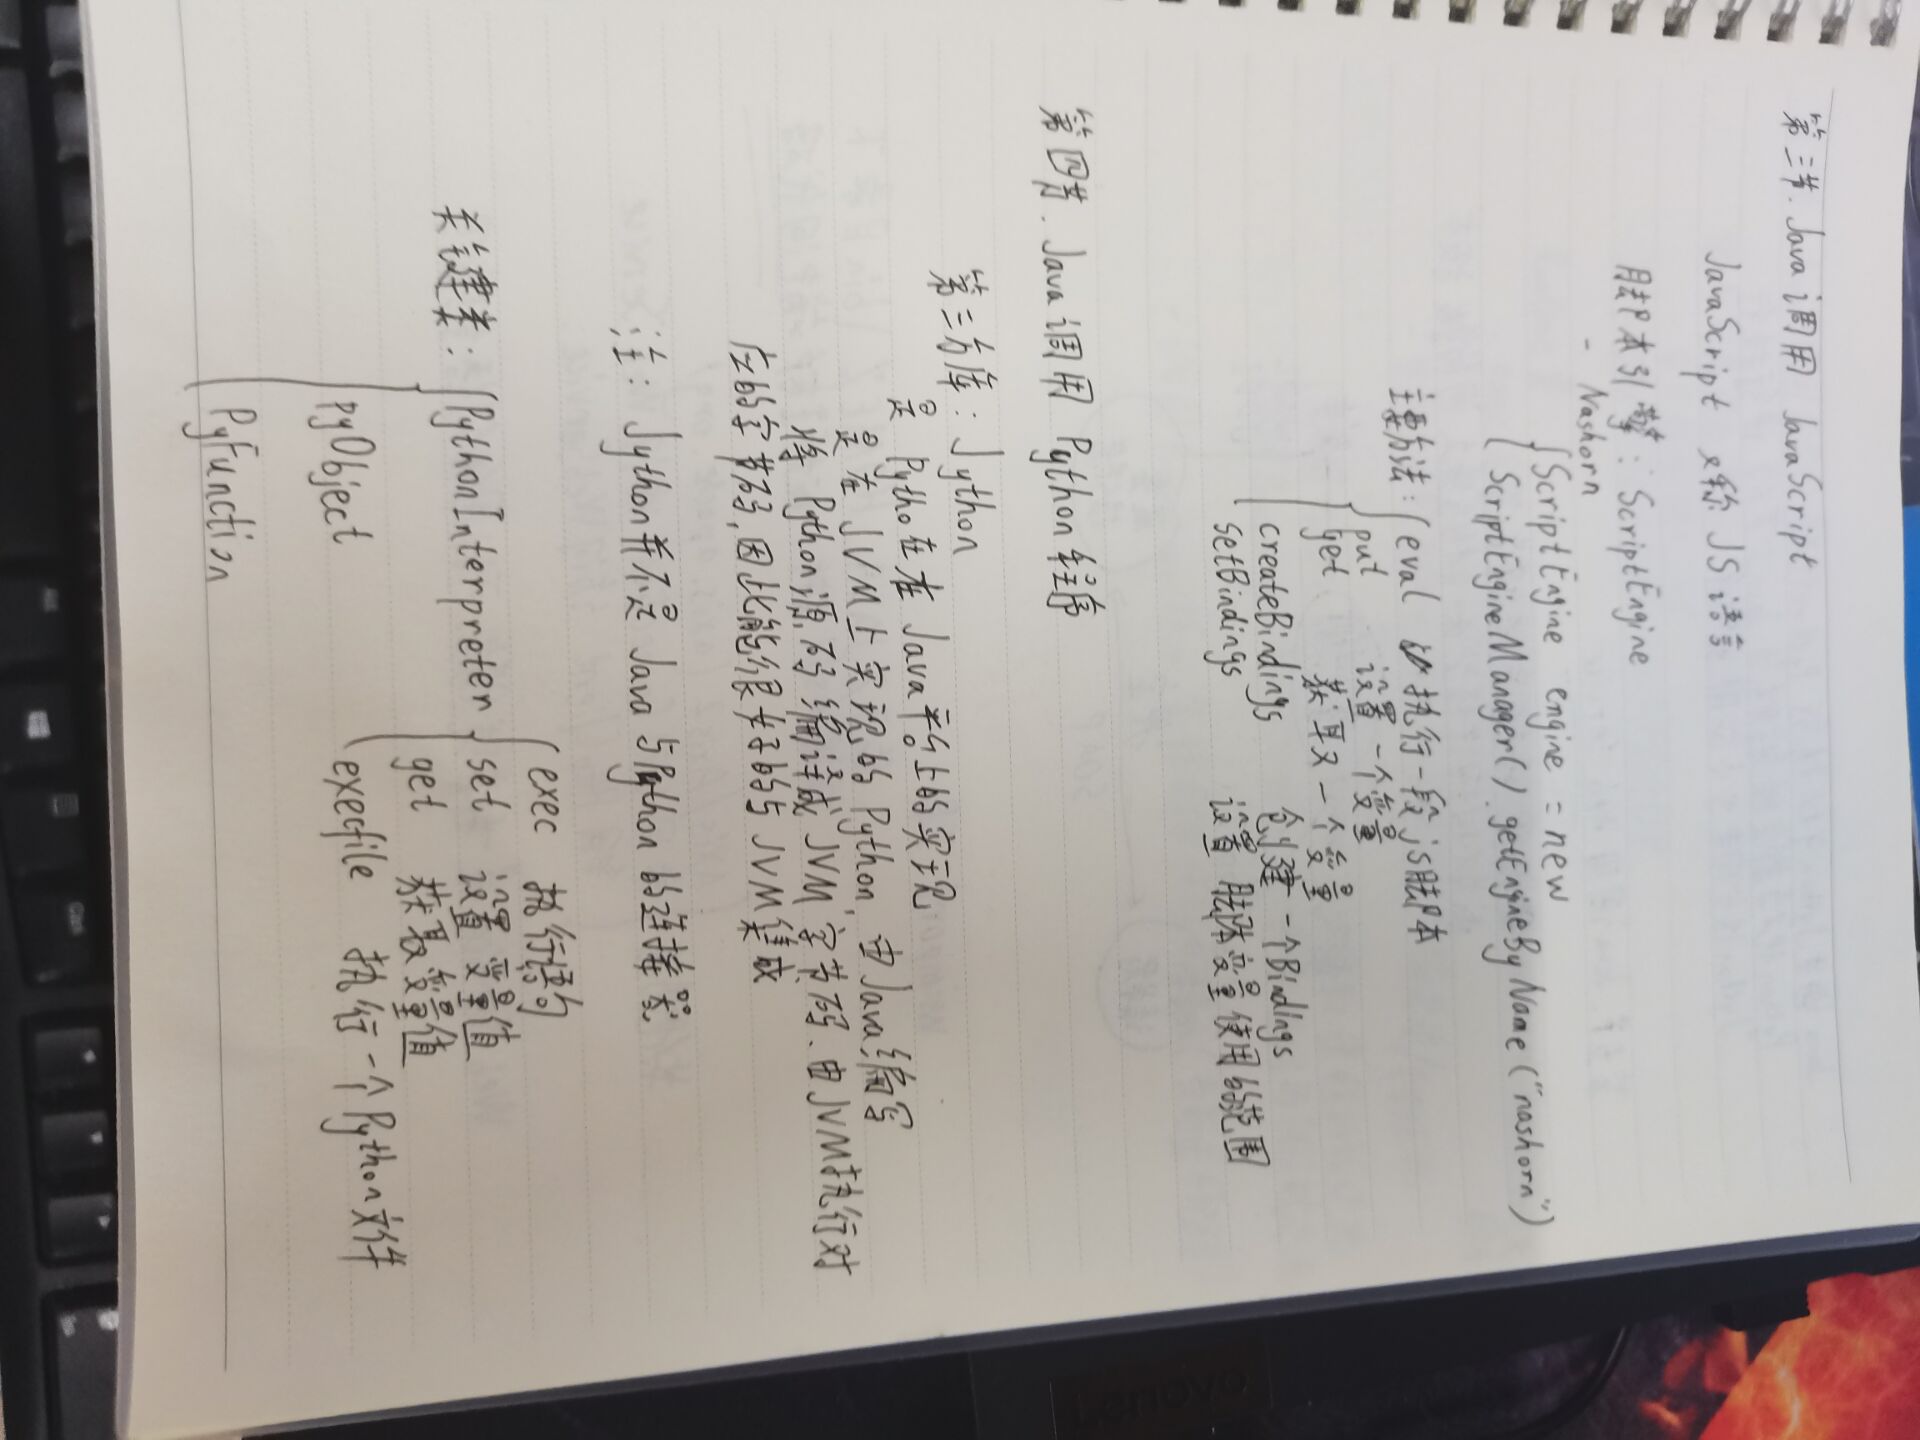 第三节. Java调用 JavaScript
JavaScript 名称 JS语言
脚本引擎: ScriptEngine
- Nashorn
{ScriptEngine engine = new
ScriptEngineManager().getEngineByName("nashorn")
主要方法: { eval 执行一段js脚本
put 设置一个变量
get 获取一个变量
createBindings 创建一个Bindings
setBindings 设置 脚本变量使用的范围
第四节. Java调用 Python程序
第三方库: Jython
是 Pytho在在 Java平台上的实现
是在 JVM上实现的Python, 由Java编写
将 Python源码编译成JVM字节码. 由JVM执行对
应的字节码,因此能很好的与JVM集成
注: Jython并不是 Java 与Python的连接器
关键类: {PythonInterpreter { exec 执行语句
set 设置变量值
get 获取变量值
execfile 执行一个Python文件
pyObject
PyFunction
Lenovo